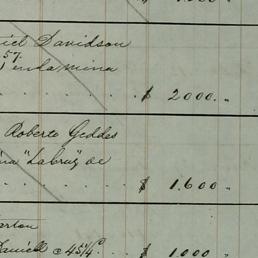 Davidson
57
en la mina
$ 2000. "
Roberto Geddes
"Labruz" de
$ 1.600 "
arton
Daniell c 45¼
$ 1.000 "